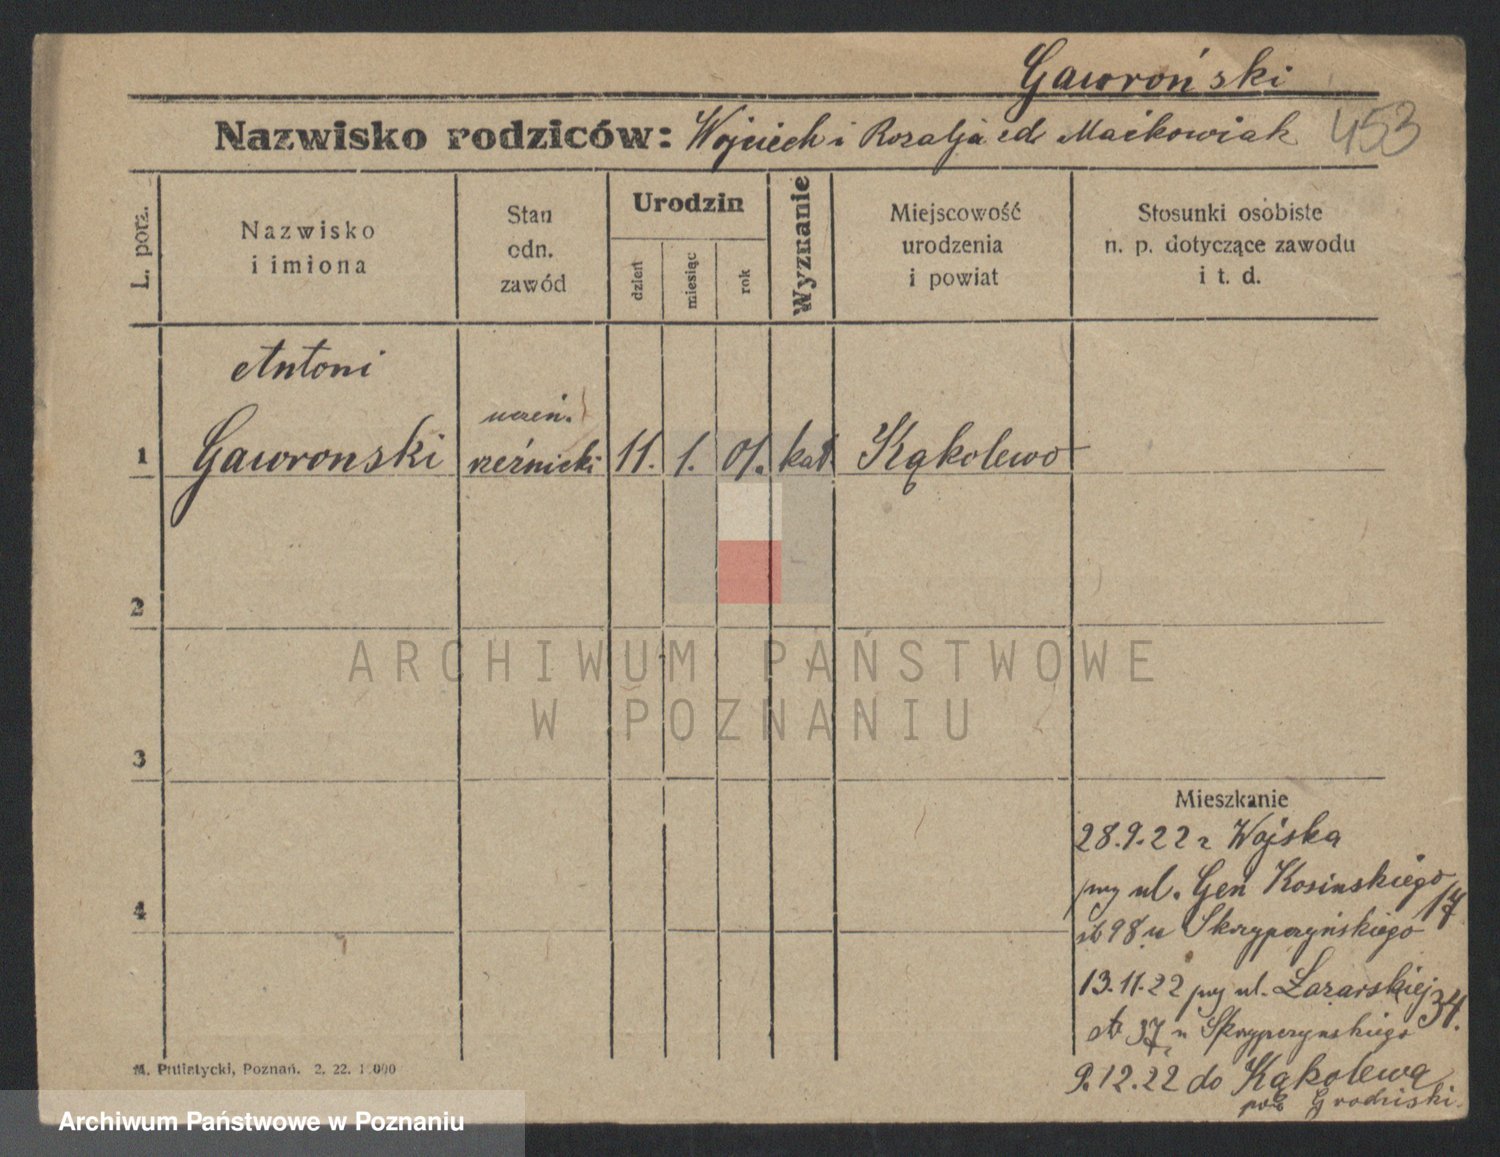 Gawroński
Nazwisko rodziców: Wojciech i Rozalja Maćkowiak 453
L. porz.
Nazwisko
i imiona
Stan
odn.
zawód
Urodzin
dzień
miesiąc
rok
Wyznanie
Miejscowość
urodzenia
i powiat
Stosunki osobiste
n. p. dotyczące zawodu
i t. d.
Antoni
uczeń.
1 Gawronski rzeźnicki 11. 1. 01. kat Kąkolewo
2
ARCHIWUM PAŃSTWOWE
W POZNANIU
3
Mieszkanie
28.9.22 z Wojska
przy ul. Gen Kosinskiego 17
98 u Skrzypczyńskiego
4
13.11.22 przy ul. Łazarskiej 34.
37 u Skrzypczynskiego
9.12.22 do Kąkolewa
pow Grodziski.
M. Putiatycki, Poznań. 2. 22. 1 000
Archiwum Państwowe w Poznaniu